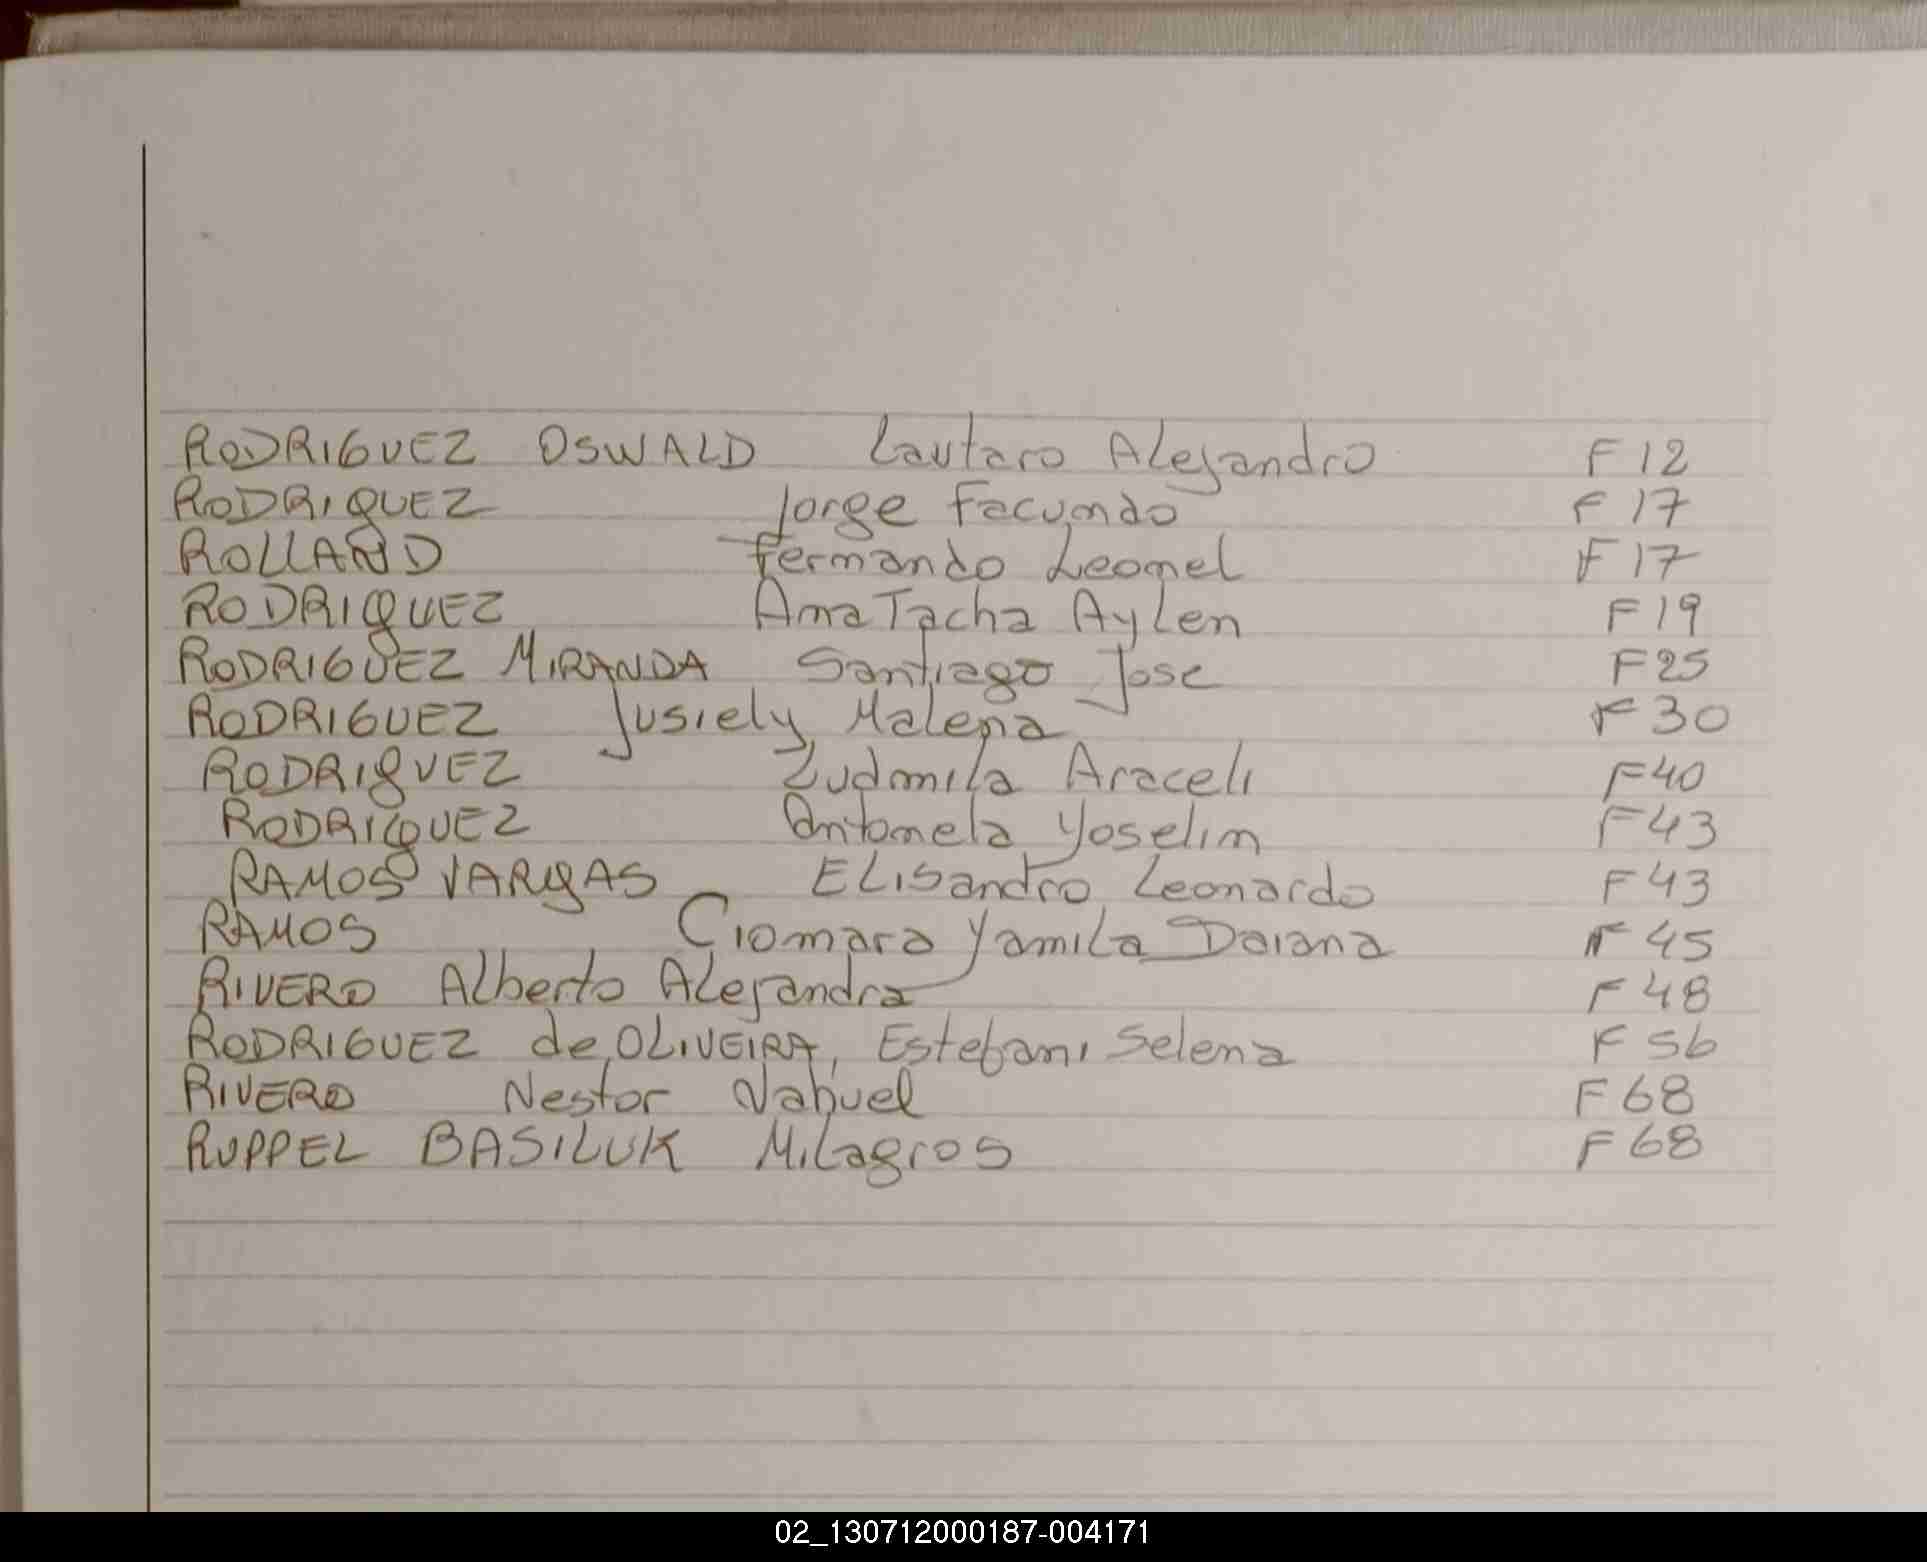 RODRIGUEZ OSWALD Lautaro Alejandro F 12
RODRIGUEZ Jorge Facundo F 17
ROLLAND Fernando Leonel F 17
RODRIGUEZ Ana Tacha Aylen F 19
RODRIGUEZ MIRANDA Santiago Jose F 25
RODRIGUEZ Jusiely Malena F 30
RODRIGUEZ Ludmila Araceli F 40
RODRIGUEZ Antonela Yoselin F 43
RAMOS VARGAS ELisandro Leonardo F 43
RAMOS Ciomara Yamila Daiana F 45
RIVERO Alberto Alejandra F 48
RODRIGUEZ de OLIVEIRA, Estefani Selena F 56
RIVERO Nestor Nahuel F 68
RUPPEL BASILUK Milagros F 68
02_130712000187-004171